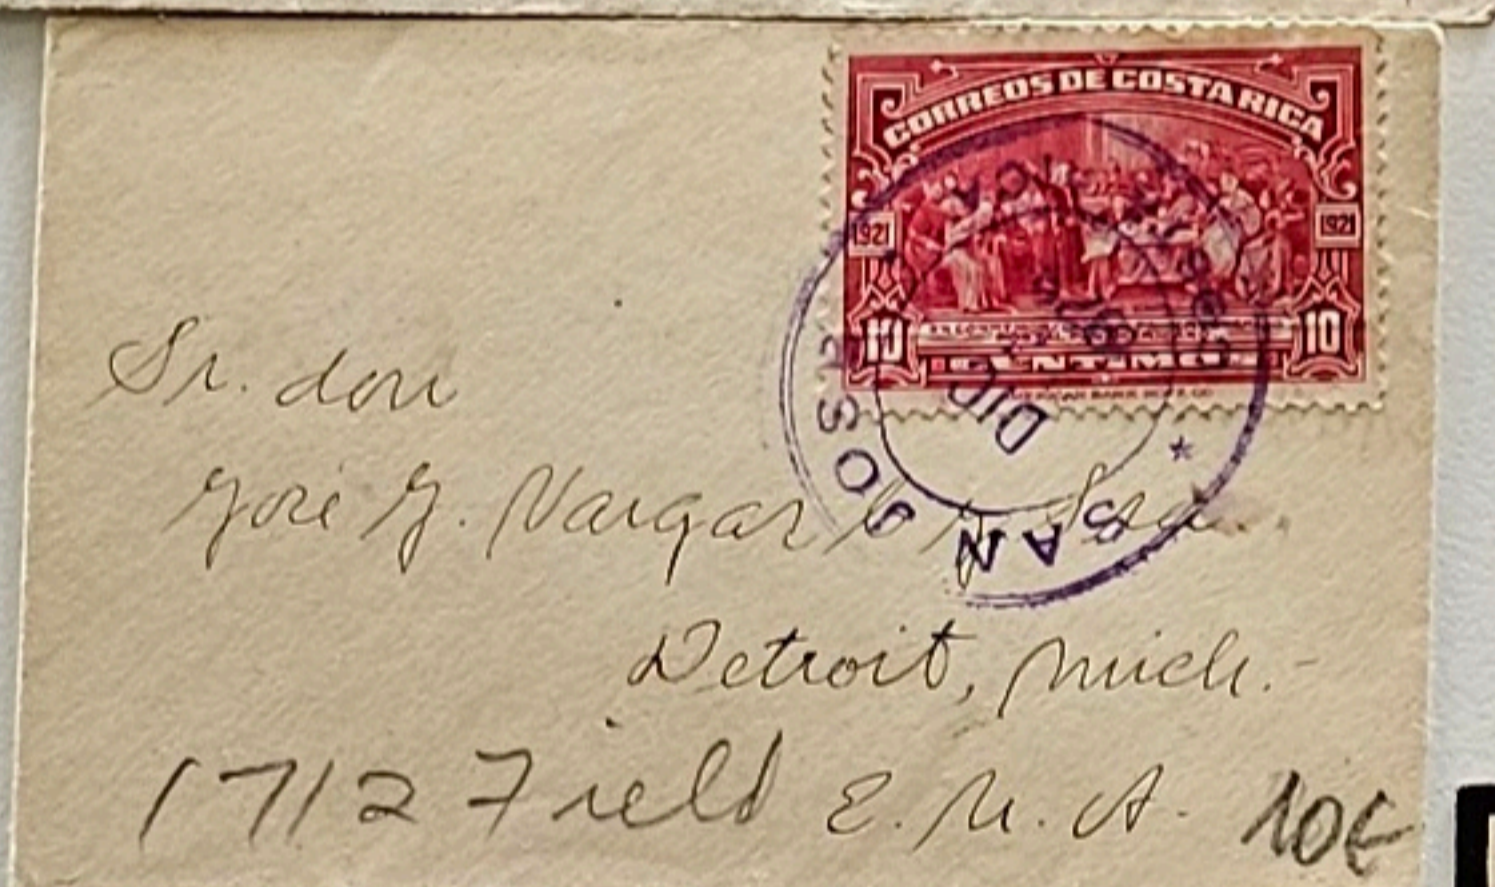 CORREOS DE COSTA RICA
1921 1921
10 10
CENTIMOS
AMERICAN BANK NOTE CO
SAN JOSE
DIC
Sr. don
José J. Vargas
Detroit, Mich.-
1712 Field E. U. A. 10¢